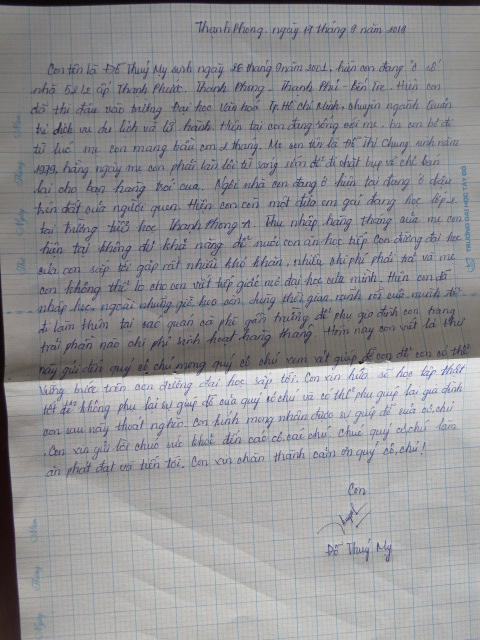 Thanh Phong, ngày 17 tháng 9 năm 2019
Con tên là Đỗ Thuý My sinh ngày 26 tháng 9 năm 2001, hiện con đang ở số
nhà 522 ấp Thạnh Phước. Thạnh Phong - Thạnh Phú - Bến Tre. Hiện con
đã thi đậu vào trường Đại học Văn hoá Tp. Hồ Chí Minh, chuyên ngành Quản
trị dịch vụ du lịch và lữ hành. Hiện tại con đang sống với mẹ, ba con bỏ đi
từ lúc mẹ con mang bầu con 2 tháng. Mẹ con tên là Đỗ Thị Chung sinh năm
1979, hằng ngày mẹ con phải lặn lội từ sáng sớm để đi chặt bụp về chẻ bán
lại cho bạn hàng trái cua. Ngôi nhà con đang ở hiện tại đang ở đậu
trên đất của người quen. Hiện con còn một đứa em gái đang học lớp 2
tại trường tiểu học Thạnh Phong A. Thu nhập hàng tháng của mẹ con
hiện tại không đủ khả năng để nuôi con ăn học tiếp. Con đường đại học
của con sắp tới gặp rất nhiều khó khăn, nhiều chi phí phải trả và mẹ
con không thể lo cho con viết tiếp giấc mơ đại học của mình. Hiện con đã
nhập học, ngoài những giờ học con dùng thời gian rảnh rỗi của mình để
đi làm thêm tại các quán cà phê gần trường để phụ gia đình con trang
trải phần nào chi phí sinh hoạt hằng tháng. Hôm nay con viết lá thư
này gửi đến quý cô chú mong quý cô chú xem xét giúp đỡ con để con có thể
vững bước trên con đường đại học sắp tới. Con xin hứa sẽ học tập thật
tốt để không phụ lại sự giúp đỡ của quý cô chú và có thể phụ giúp lại gia đình
con sau này thoát nghèo. Con kính mong nhận được sự giúp đỡ của cô, chú
. Con xin gửi lời chúc sức khoẻ đến các cô, các chú. Chúc quý cô, chú làm
ăn phát đạt và tiến tới. Con xin chân thành cảm ơn quý cô, chú!
Con
Đỗ Thuý My
TRƯỜNG ĐẠI HỌC TÂY ĐÔ
Ngày Tháng Năm